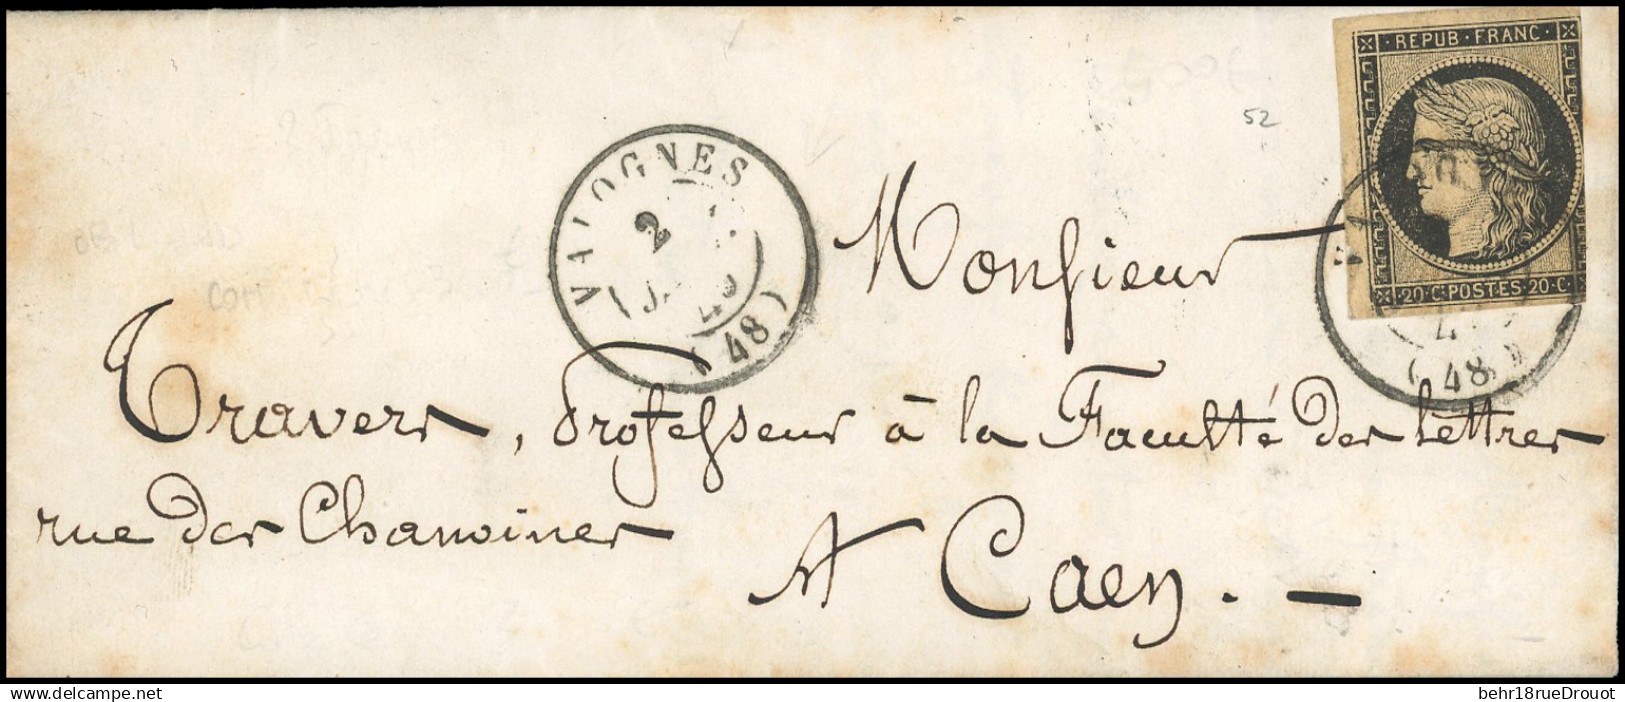 REPUB · FRANC ·
20 · C · POSTES · 20 · C ·
52
VALOGNES
2
(48)
(48)
Monsieur
Travers, Professeur à la Faculté des lettres
rue des Chanoines
A Caen . —
behr18rueDrouot